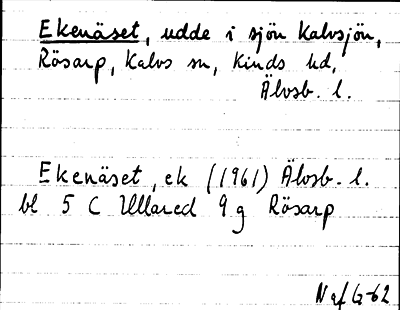 Ekenäset, udde i sjön Kalvsjön,
Rösarp, Kalvs sn, Kinds hd,
Älvsb. l.
Ekenäset, ek (1961) Älvsb. l.
bl 5 C Ullared 9 g Rösarp
N af G-62